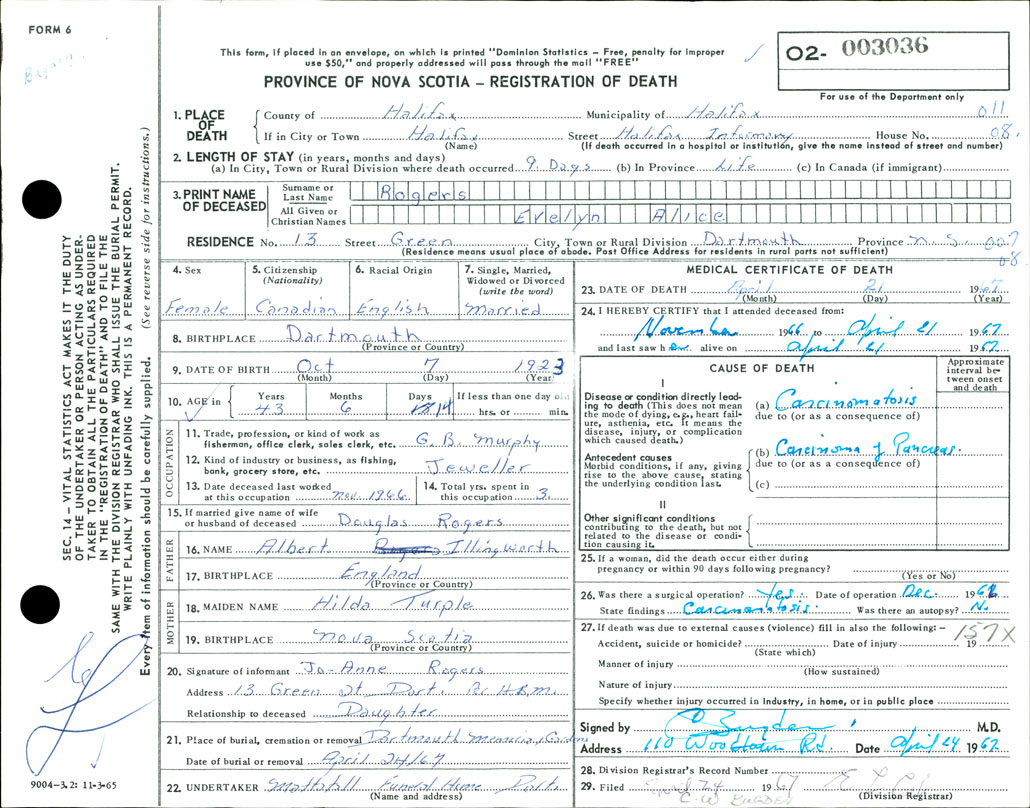 FORM 6
This form, if placed in an envelope, on which is printed "Dominion Statistics – Free, penalty for improper
use $50," and properly addressed will pass through the mail "FREE"
PROVINCE OF NOVA SCOTIA – REGISTRATION OF DEATH
02- 003036
For use of the Department only
1. PLACE OF DEATH
County of Halifax Municipality of Halifax 011
If in City or Town Halifax Street Halifax Infirmary House No. 08
(Name) (If death occurred in a hospital or institution, give the name instead of street and number)
2. LENGTH OF STAY (in years, months and days)
(a) In City, Town or Rural Division where death occurred 9 Days (b) In Province Life (c) In Canada (if immigrant)
3. PRINT NAME OF DECEASED
Surname or Last Name Rogers
All Given or Christian Names Evelyn Alice
RESIDENCE No. 13 Street Green City, Town or Rural Division Dartmouth Province N.S. 007
(Residence means usual place of abode. Post Office Address for residents in rural parts not sufficient) 08
4. Sex
Female
5. Citizenship (Nationality)
Canadian
6. Racial Origin
English
7. Single, Married, Widowed or Divorced (write the word)
Married
8. BIRTHPLACE Dartmouth
(Province or Country)
9. DATE OF BIRTH Oct 7 1923
(Month) (Day) (Year)
10. AGE in Years Months Days If less than one day old
43 6 14 hrs. or min.
OCCUPATION
11. Trade, profession, or kind of work as fisherman, office clerk, sales clerk, etc. G. B. Murphy
12. Kind of industry or business, as fishing, bank, grocery store, etc. Jeweller
13. Date deceased last worked at this occupation Nov. 1966
14. Total yrs. spent in this occupation 3.
15. If married give name of wife or husband of deceased Douglas Rogers
FATHER
16. NAME Albert Rogers Illingworth
17. BIRTHPLACE England
(Province or Country)
MOTHER
18. MAIDEN NAME Hilda Turple
19. BIRTHPLACE Nova Scotia
(Province or Country)
20. Signature of informant Jo-Anne Rogers
Address 13 Green St. Dart. Per H.B.M.
Relationship to deceased Daughter
21. Place of burial, cremation or removal Dartmouth Memorial Gardens
Date of burial or removal April 24/67
22. UNDERTAKER Mattatall Funeral Home Dart.
(Name and address)
MEDICAL CERTIFICATE OF DEATH
23. DATE OF DEATH April 21 1967
(Month) (Day) (Year)
24. I HEREBY CERTIFY that I attended deceased from:
November 1966 to April 21 1967
and last saw her alive on April 21 1967
CAUSE OF DEATH
Approximate interval between onset and death
I
Disease or condition directly leading to death (This does not mean the mode of dying, e.g., heart failure, asthenia, etc. It means the disease, injury, or complication which caused death.)
(a) Carcinomatosis
due to (or as a consequence of)
Antecedent causes
Morbid conditions, if any, giving rise to the above cause, stating the underlying condition last.
(b) Carcinoma of Pancreas.
due to (or as a consequence of)
(c)
II
Other significant conditions
contributing to the death, but not related to the disease or condition causing it.
25. If a woman, did the death occur either during
pregnancy or within 90 days following pregnancy?
(Yes or No)
26. Was there a surgical operation? Yes. Date of operation Dec. 196
State findings Carcinomatosis. Was there an autopsy? No
27. If death was due to external causes (violence) fill in also the following: – 157X
Accident, suicide or homicide? Date of injury 19
(State which)
Manner of injury
(How sustained)
Nature of injury
Specify whether injury occurred in industry, in home, or in public place
Signed by M.D.
Address 110 Rd. Date April 24 1967
28. Division Registrar's Record Number
29. Filed April 24 1967
(Division Registrar)
SEC. 14 – VITAL STATISTICS ACT MAKES IT THE DUTY
OF THE UNDERTAKER OR PERSON ACTING AS UNDER-
TAKER TO OBTAIN ALL THE PARTICULARS REQUIRED
IN THE "REGISTRATION OF DEATH" AND TO FILE THE
SAME WITH THE DIVISION REGISTRAR WHO SHALL ISSUE THE BURIAL PERMIT.
WRITE PLAINLY WITH UNFADING INK. THIS IS A PERMANENT RECORD.
Every item of information should be carefully supplied. (See reverse side for instructions.)
9004–3.2: 11-3-65